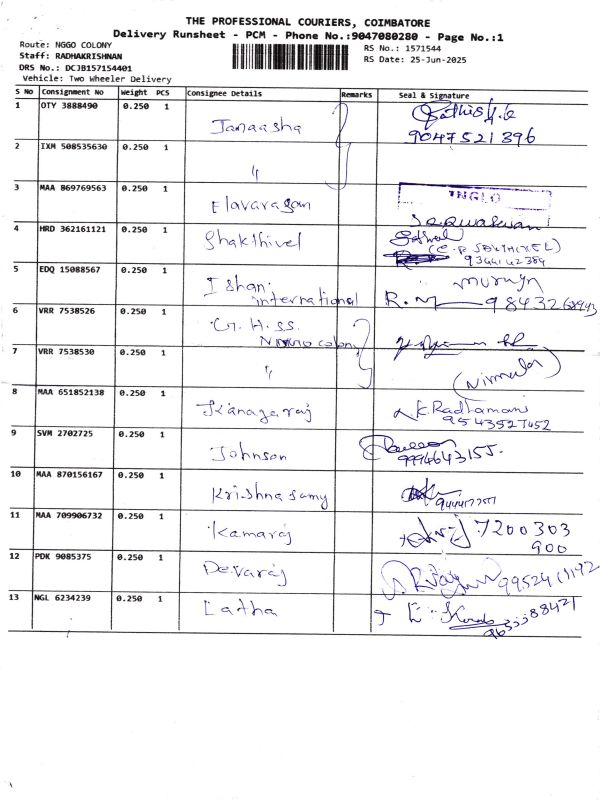 THE PROFESSIONAL COURIERS, COIMBATORE
Delivery Runsheet - PCM - Phone No.:9047080280 - Page No.:1
Route: NGGO COLONY
Staff: RADHAKRISHNAN
DRS No.: DCJB157154401
Vehicle: Two Wheeler Delivery
RS No.: 1571544
RS Date: 25-Jun-2025
S No Consignment No Weight PCS Consignee Details Remarks Seal & Signature
1 OTY 3888490 0.250 1 Janaasha
9047521396
2 IXM 508535630 0.250 1 "
3 MAA 869769563 0.250 1 Elavarasan
4 HRD 362161121 0.250 1 Shakthivel
9344142384
5 EDQ 15088567 0.250 1 Ishan international murugn
R.M
6 VRR 7538526 0.250 1 G. H. SS. NGGO colony
7 VRR 7538530 0.250 1 " (Nirmala)
8 MAA 651852138 0.250 1 Kanagaraj K. Radhamani
9543527452
9 SVM 2702725 0.250 1 Johnson
9994643155.
10 MAA 870156167 0.250 1 Krishnasamy
11 MAA 709906732 0.250 1 Kamaraj 7200303
900
12 PDK 9085375 0.250 1 Devaraj
13 NGL 6234239 0.250 1 Latha